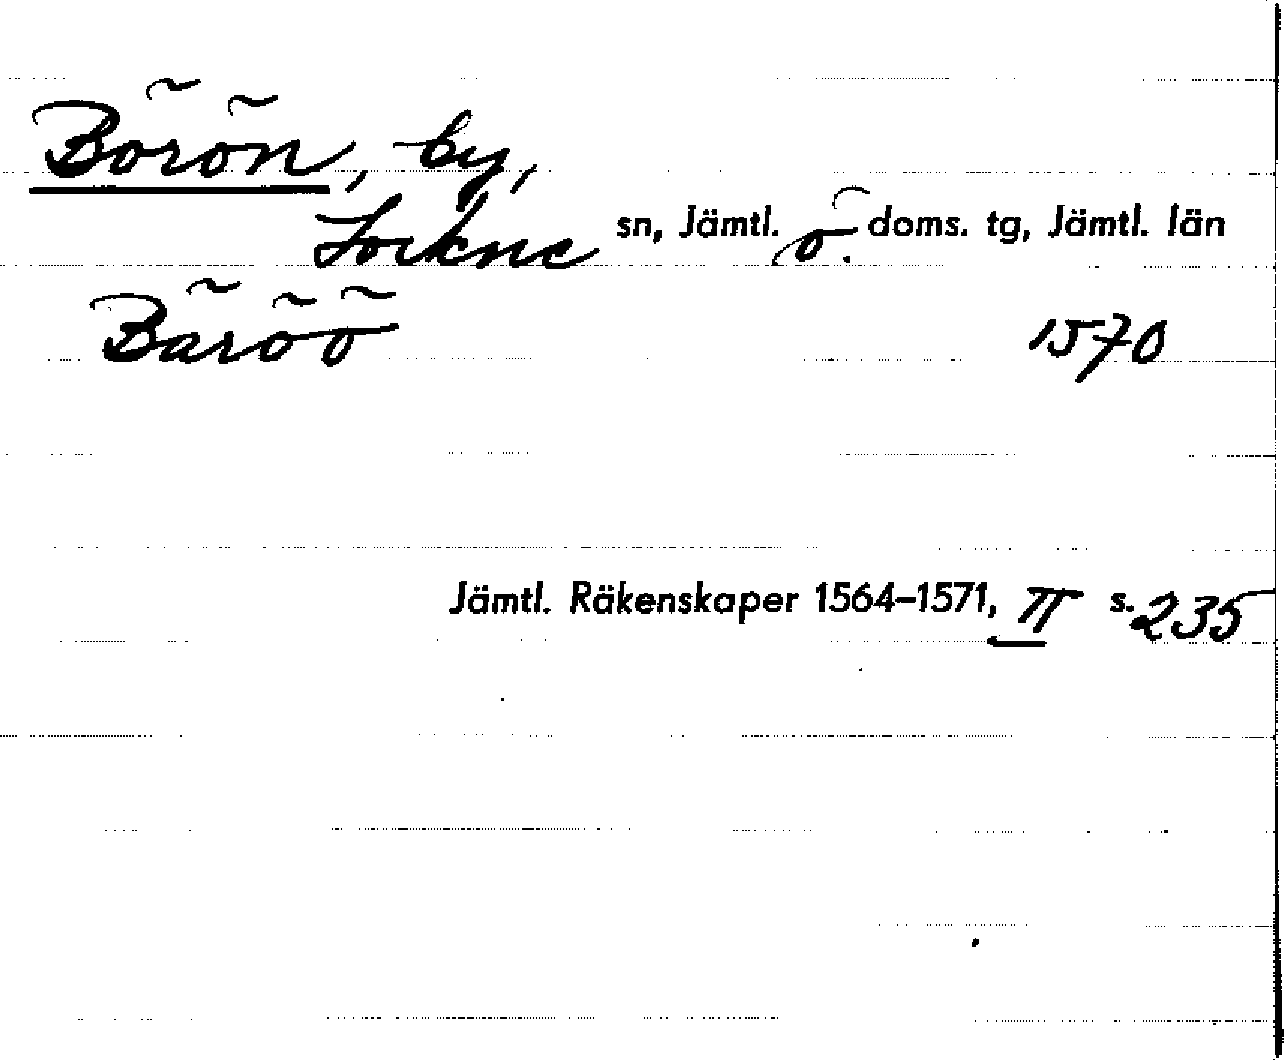 Börön, by,
Lockne sn, Jämtl. ö. doms. tg, Jämtl. län
Bäröö 1570
Jämtl. Räkenskaper 1564-1571, II s. 235